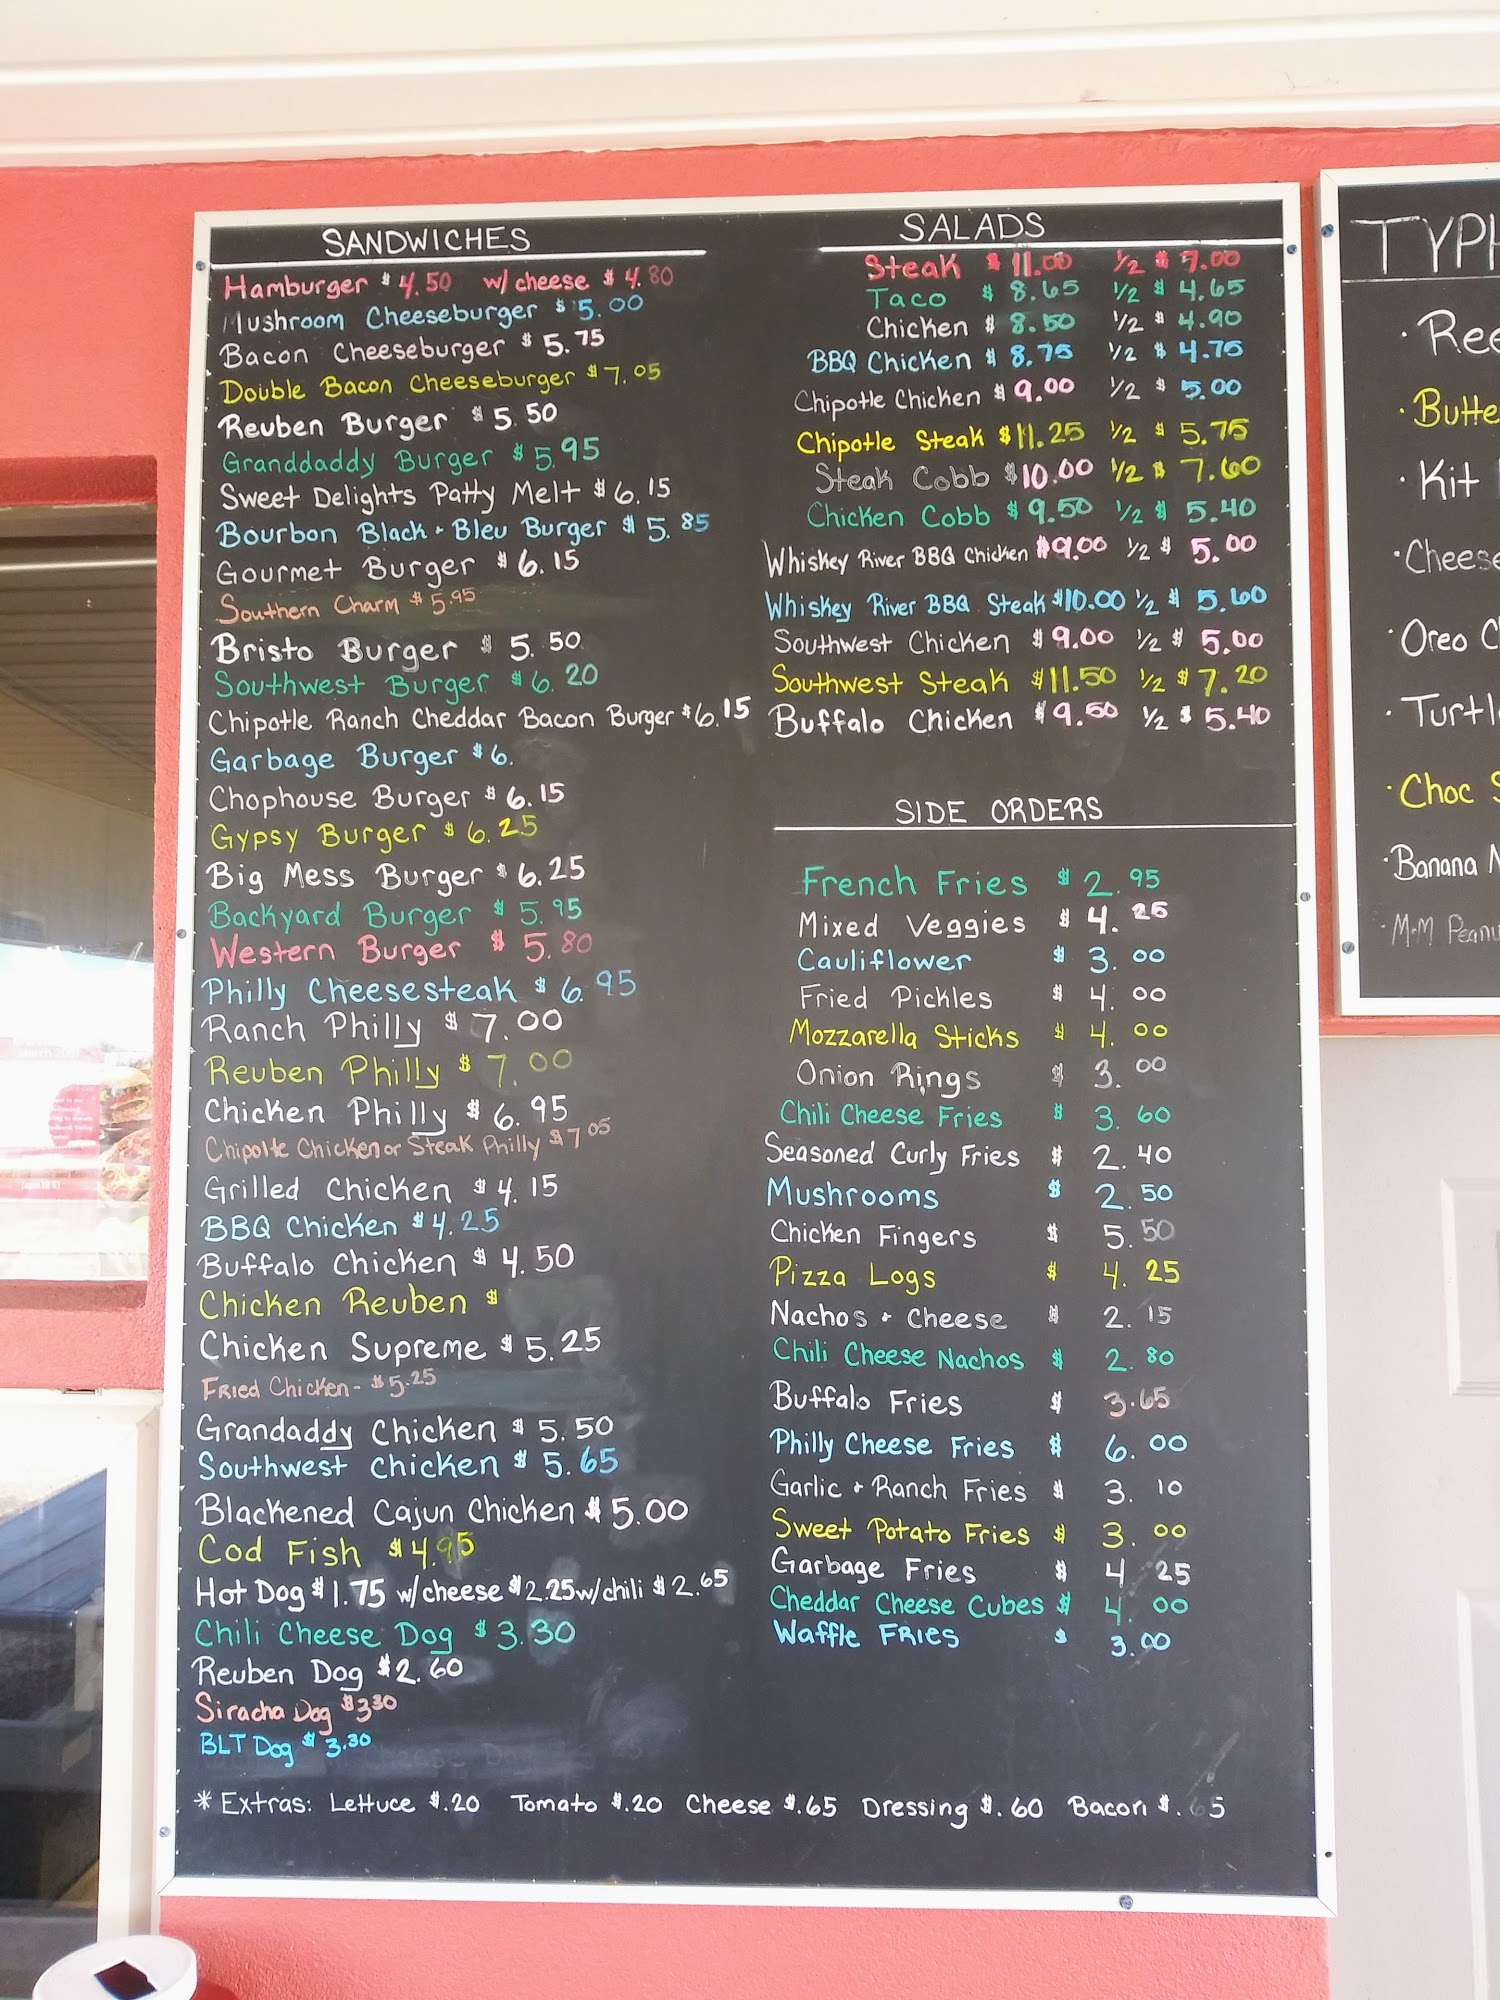 SANDWICHES
Hamburger $4.50 w/ cheese $4.80
Mushroom Cheeseburger $5.00
Bacon Cheeseburger $5.75
Double Bacon Cheeseburger $7.05
Reuben Burger $5.50
Granddaddy Burger $5.95
Sweet Delights Patty Melt $6.15
Bourbon Black + Bleu Burger $5.85
Gourmet Burger $6.15
Southern Charm $5.95
Bristo Burger $5.50
Southwest Burger $6.20
Chipotle Ranch Cheddar Bacon Burger $6.15
Garbage Burger $6.
Chophouse Burger $6.15
Gypsy Burger $6.25
Big Mess Burger $6.25
Backyard Burger $5.95
Western Burger $5.80
Philly Cheesesteak $6.95
Ranch Philly $7.00
Reuben Philly $7.00
Chicken Philly $6.95
Chipotle Chicken or Steak Philly $7.05
Grilled Chicken $4.15
BBQ Chicken $4.25
Buffalo Chicken $4.50
Chicken Reuben $
Chicken Supreme $5.25
Fried Chicken - $5.25
Grandaddy Chicken $5.50
Southwest Chicken $5.65
Blackened Cajun Chicken $5.00
Cod Fish $4.95
Hot Dog $1.75 w/cheese $2.25 w/chili $2.65
Chili Cheese Dog $3.30
Reuben Dog $2.60
Siracha Dog $3.30
BLT Dog $3.30
SALADS
Steak $11.00 1/2 $7.00
Taco $8.65 1/2 $4.65
Chicken $8.50 1/2 $4.90
BBQ Chicken $8.75 1/2 $4.75
Chipotle Chicken $9.00 1/2 $5.00
Chipotle Steak $11.25 1/2 $5.75
Steak Cobb $10.00 1/2 $7.60
Chicken Cobb $9.50 1/2 $5.40
Whiskey River BBQ Chicken $9.00 1/2 $5.00
Whiskey River BBQ Steak $10.00 1/2 $5.60
Southwest Chicken $9.00 1/2 $5.00
Southwest Steak $11.50 1/2 $7.20
Buffalo Chicken $9.50 1/2 $5.40
SIDE ORDERS
French Fries $2.95
Mixed Veggies $4.25
Cauliflower $3.00
Fried Pickles $4.00
Mozzarella Sticks $4.00
Onion Rings $3.00
Chili Cheese Fries $3.60
Seasoned Curly Fries $2.40
Mushrooms $2.50
Chicken Fingers $5.50
Pizza Logs $4.25
Nachos + Cheese $2.15
Chili Cheese Nachos $2.80
Buffalo Fries $3.65
Philly Cheese Fries $6.00
Garlic + Ranch Fries $3.10
Sweet Potato Fries $3.00
Garbage Fries $4 25
Cheddar Cheese Cubes $4.00
Waffle Fries $3.00
*Extras: Lettuce $.20 Tomato $.20 Cheese $.65 Dressing $.60 Bacon $.65
TYPH
· Ree
· Butte
· Kit
· Cheese
· Oreo C
· Turtl
· Choc S
· Banana N
· M+M Peanu